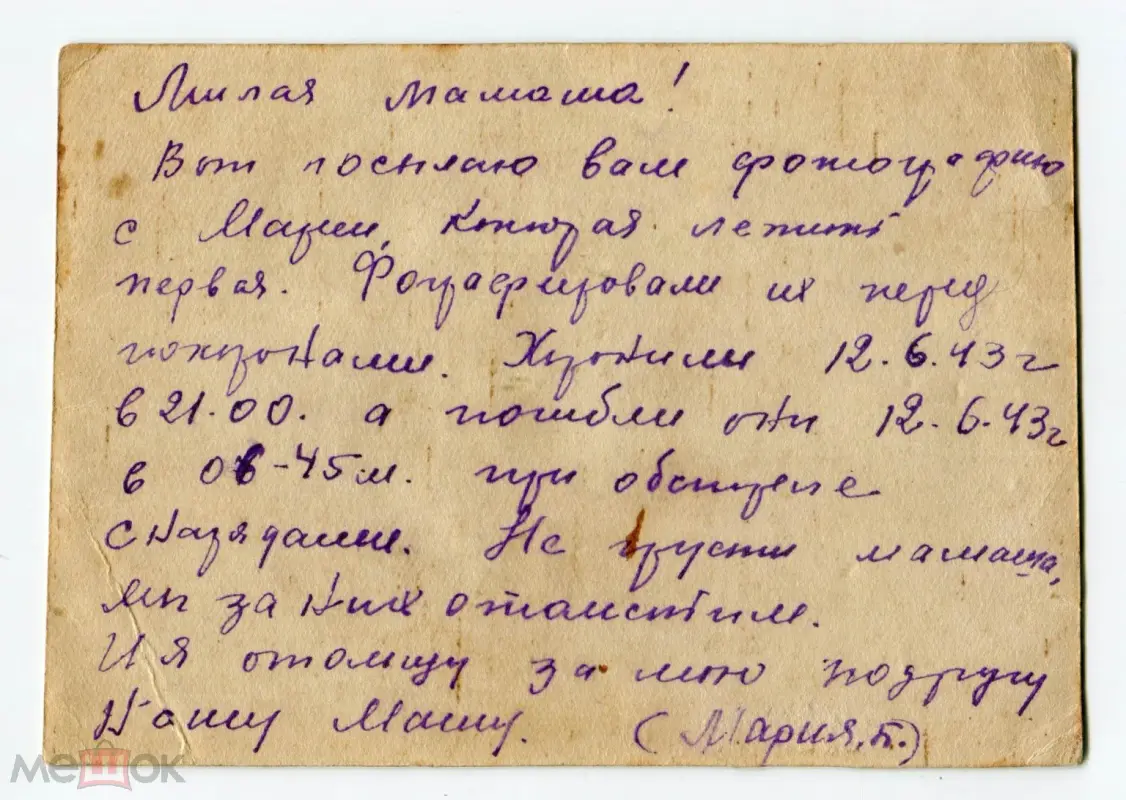 Милая мамаша!
Вот посылаю вам фотографию
с Марии, которая лежит
первая. Фотографировали их перед
похоронами. Хоронили 12.6.43 г
в 21.00. а погибли они 12.6.43 г
в 06-45 м. при обстреле
снарядами. Не грусти мамаша,
мы за них отомстим.
И я отомщу за мою подругу
нашу Машу. (Мария.П.)
мешок